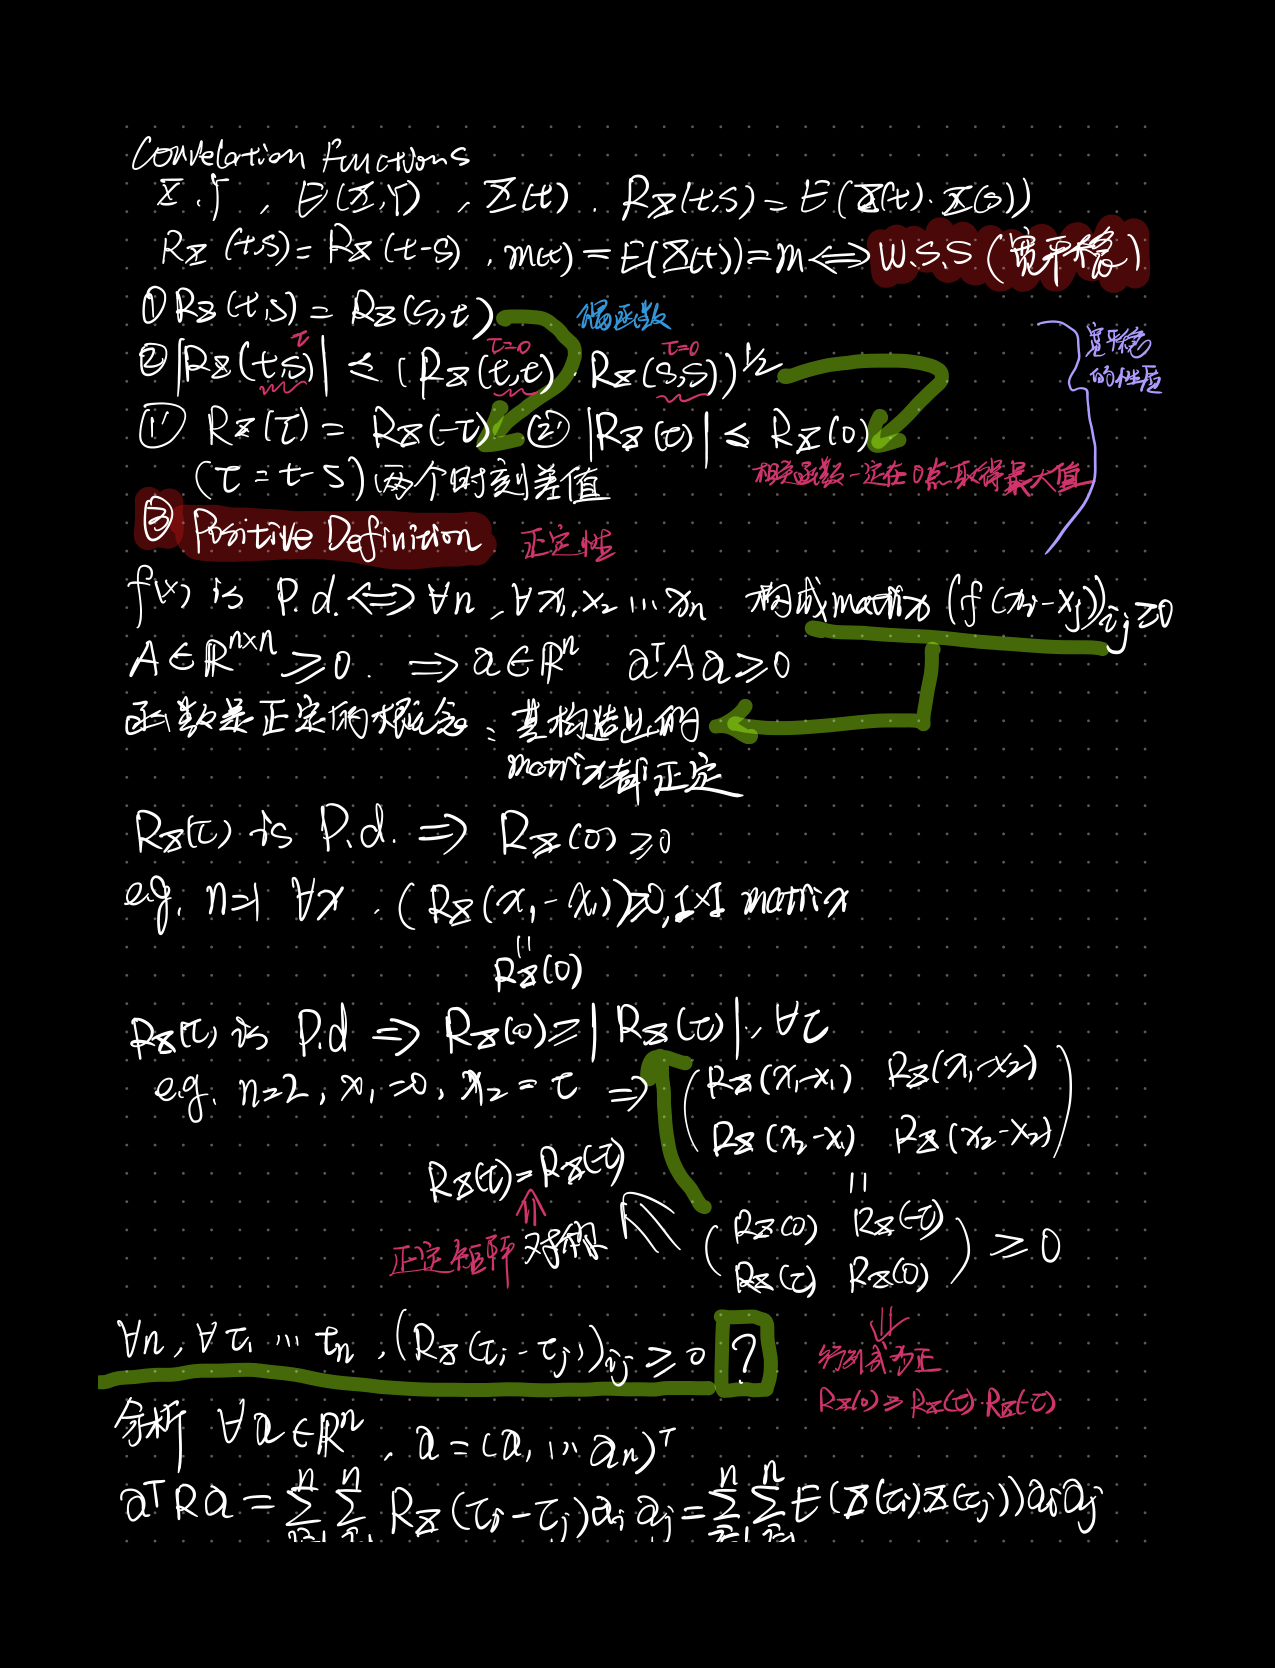 Correlation Functions
X.Y , E(X,Y) , X(t) . R_X(t,s) = E(X(t)·X(s))
R_X(t,s) = R_X(t-s) , m(t) = E(X(t)) = m ⟺ W.S.S (宽平稳)
① R_X(t,s) = R_X(s,t) 偶函数
宽平稳
的性质
τ τ=0 τ=0
② |R_X(t,s)| ≤ (R_X(t,t)·R_X(s,s))^{1/2}
①' R_X(τ) = R_X(-τ) ②' |R_X(τ)| ≤ R_X(0)
(τ = t-s) 两个时刻差值 相关函数一定在0点取得最大值
③ Positive Definition 正定性
f(x) is P.d. ⟺ ∀n , ∀x₁, x₂ ... x_n 构成matrix (f(x_i - x_j))_{ij} ≥ 0
A ∈ ℝ^{n×n} ≥ 0 . ⟹ a ∈ ℝ^n aᵀAa ≥ 0
函数是正定的概念: 其构造出的
matrix都正定
R_X(τ) is P.d. ⟹ R_X(0) ≥ 0
e.g. n=1 ∀x . (R_X(x₁ - x₁)) ≥ 0, 1×1 matrix
=
R_X(0)
R_X(τ) is P.d ⟹ R_X(0) ≥ |R_X(τ)| , ∀τ
e.g. n=2, x₁=0, x₂ = τ ⟹ ( R_X(x₁-x₁) R_X(x₁-x₂)
R_X(x₂-x₁) R_X(x₂-x₂) )
R_X(τ) = R_X(-τ) =
正定矩阵 对称 ⟸ ( R_X(0) R_X(-τ)
R_X(τ) R_X(0) ) ≥ 0
∀n, ∀τ₁ ... τ_n , (R_X(τ_i - τ_j))_{ij} ≥ 0 ?
⇓
行列式为正
R_X(0) ≥ R_X(τ)·R_X(-τ)
分析 ∀a ∈ ℝ^n , a = (a₁ ... a_n)ᵀ
aᵀRa = Σ_{i=1}^n Σ_{j=1}^n R_X(τ_i - τ_j) a_i a_j = Σ_{i=1}^n Σ_{j=1}^n E(X(τ_i)X(τ_j)) a_i a_j